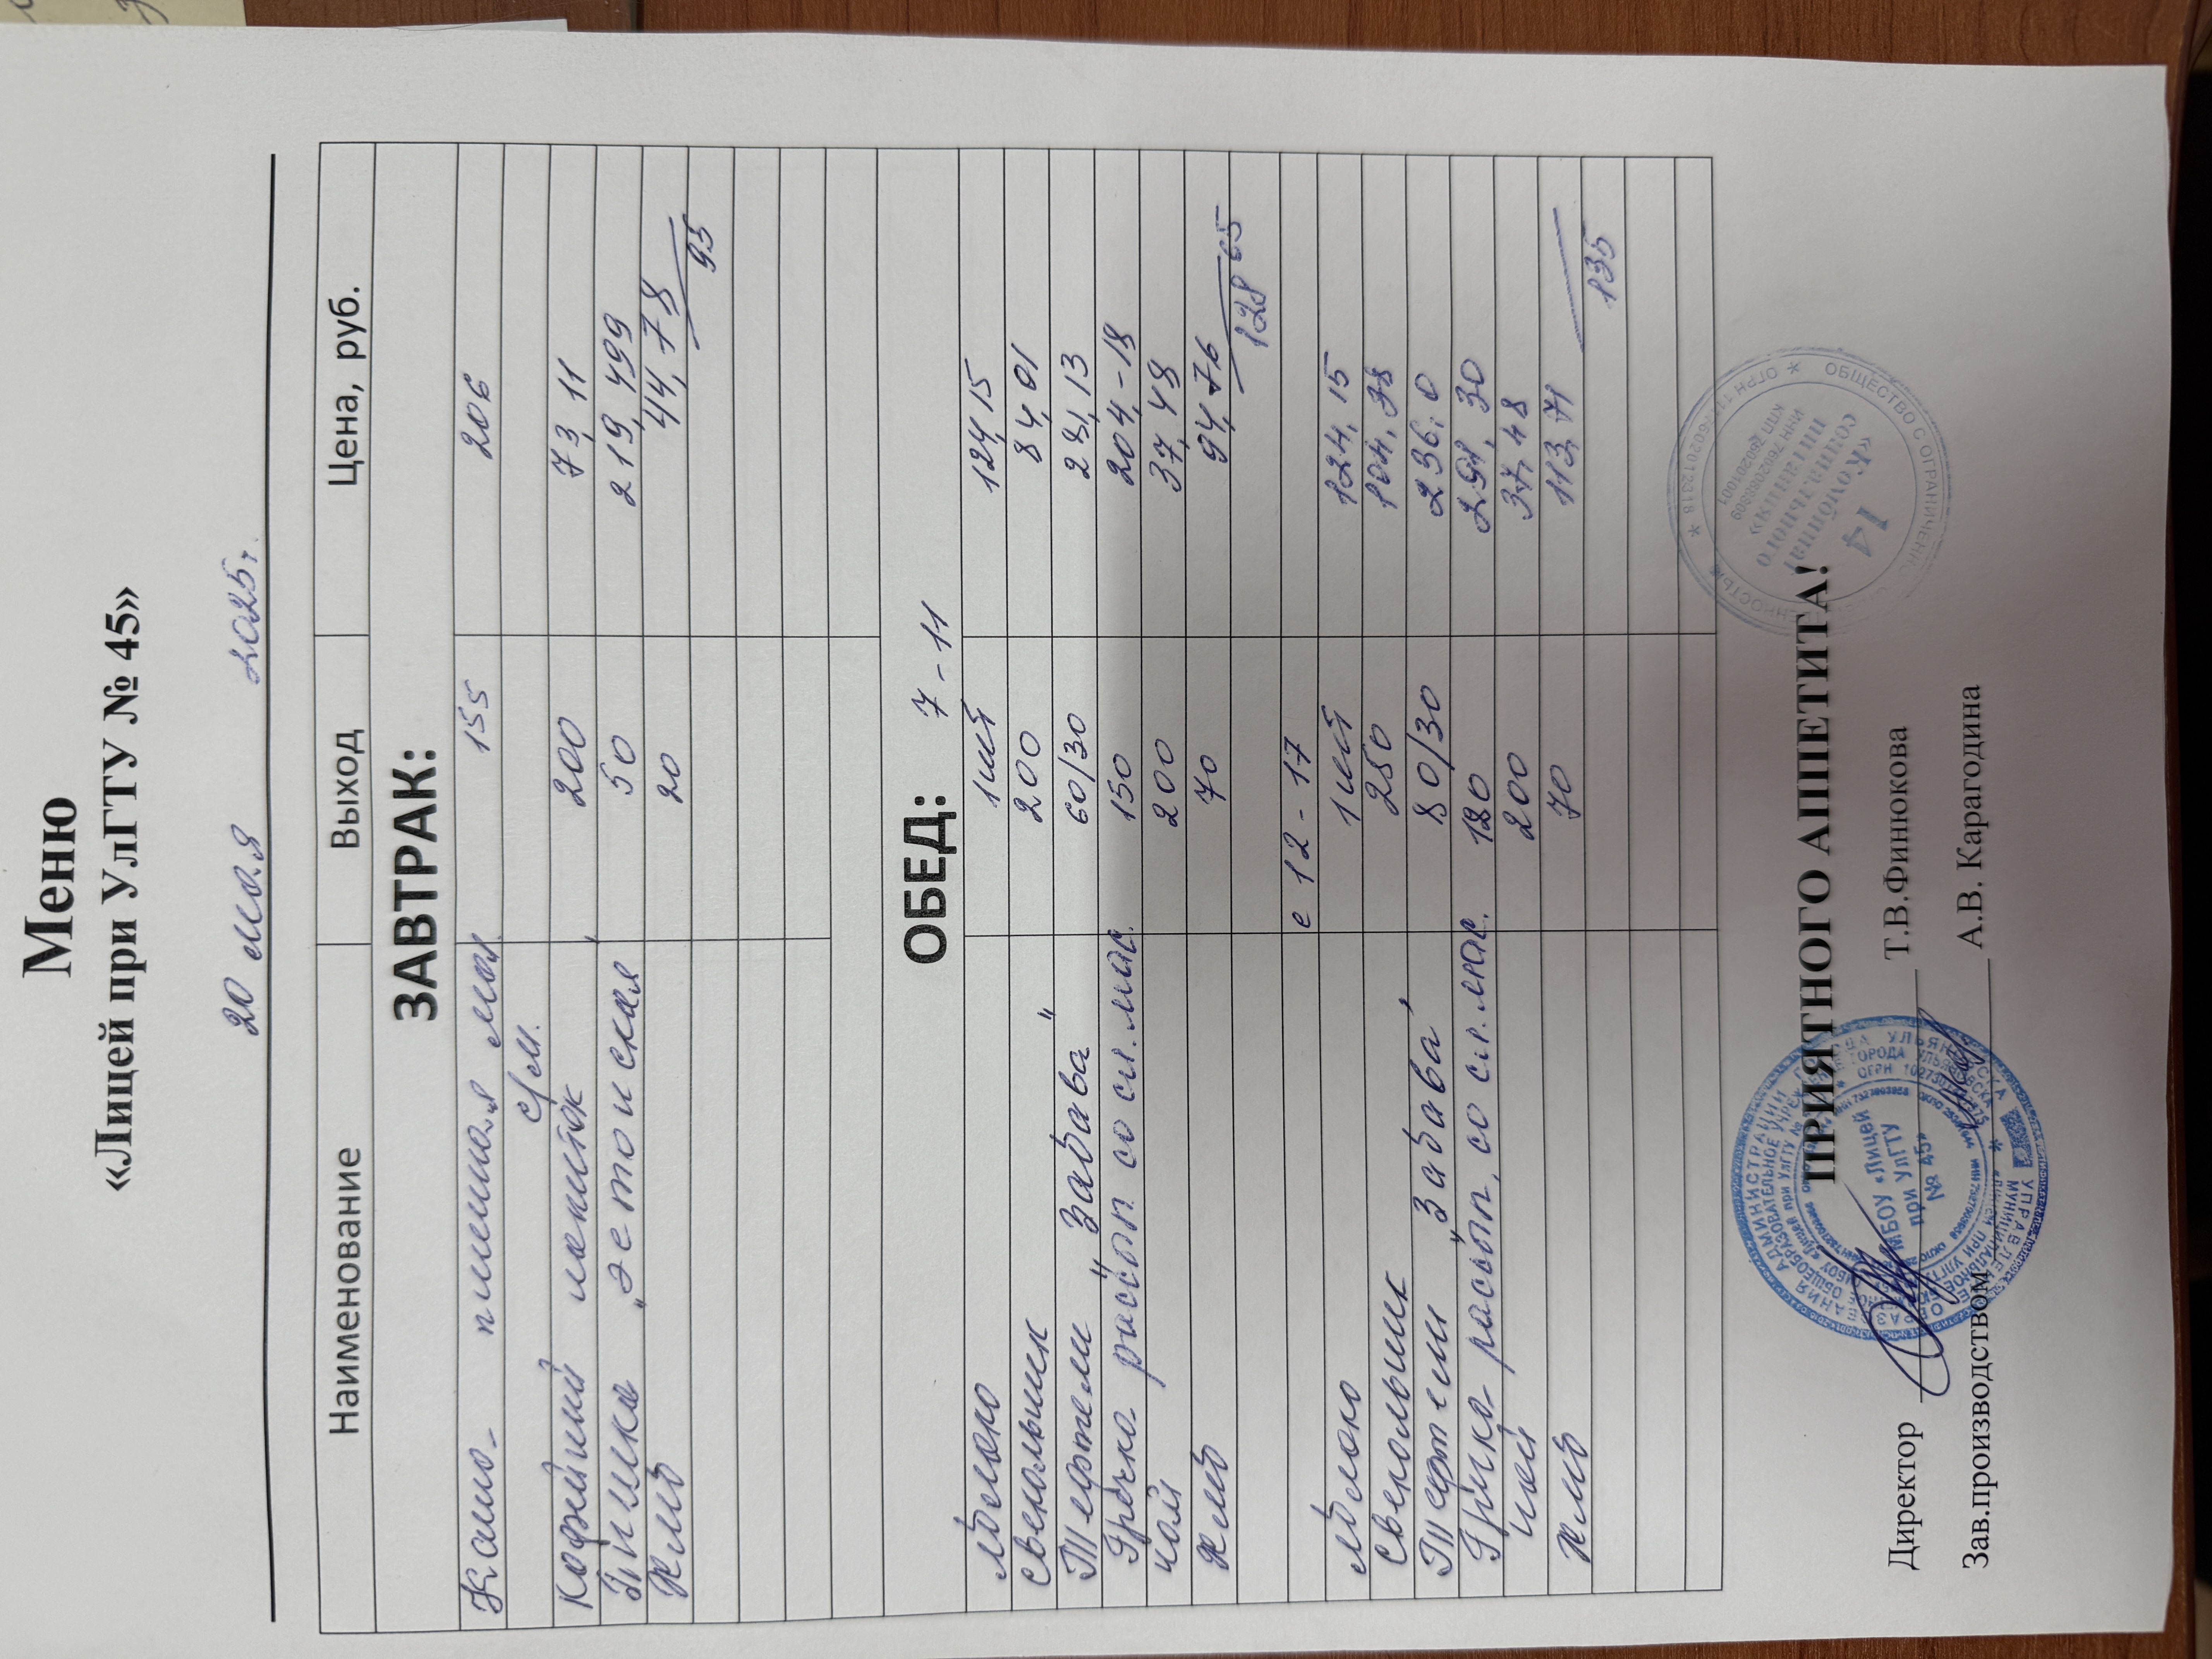 Меню
«Лицей при УлГТУ № 45»
20 мая 2025г.
Наименование Выход Цена, руб.
ЗАВТРАК:
Каша пшенная мол. 155 206
с/м.
Кофейный напиток 200 73,11
Пышка "Эстонская" 50 219,499
Хлеб 20 44,78
95
ОБЕД: 7-11
Яблоко 1шт 124,15
Свекольник 200 84,01
Тефтели "Забава" 60/30 231,13
Гречка рассып со сл. мас. 150 204-18
чай 200 37,48
Хлеб 70 94,76
128 65
с 12-17
Яблоко 1шт 124,15
Свекольник 250 104,38
Тефтели "Забава" 80/30 236,0
Гречка рассып. со сл. мас. 180 291,30
чай 200 37,48
Хлеб 70 113,71
135
ПРИЯТНОГО АППЕТИТА!
Директор Т.В.Финюкова
Зав.производством А.В. Карагодина
МБОУ «Лицей
при УлГТУ
№ 45»
«Комбинат
социального
питания»
14